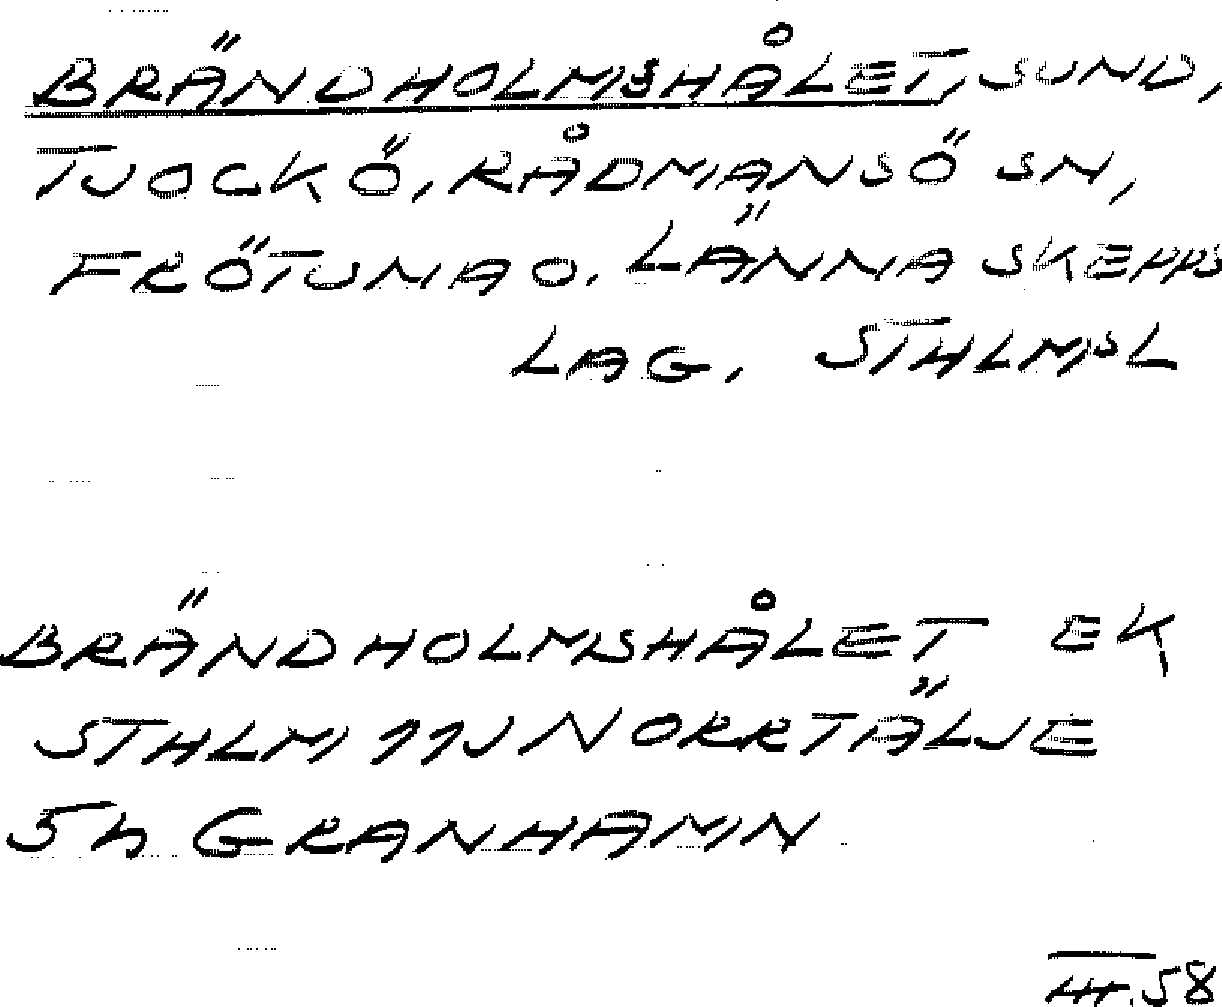 BRÄNDHOLMSHÅLET, SUND,
TJOCKÖ, RÅDMANSÖ SN,
FRÖTUNA O. LÄNNA SKEPPS
LAG, STHLMSL
BRÄNDHOLMSHÅLET EK
STHLM 11J NORRTÄLJE
5h GRANHAMN
58